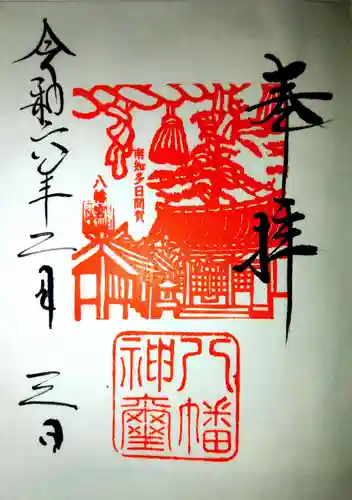 奉拝
南知多日間賀
八幡宮
八幡
神璽
令和六年二月三日